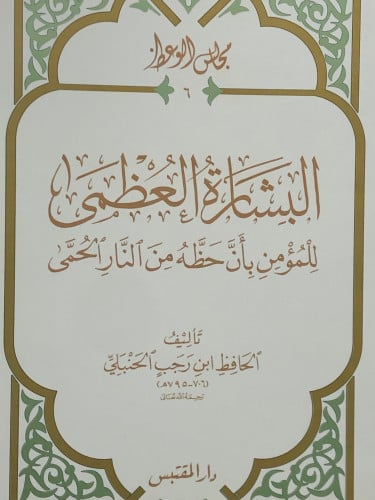 مجالس الوعظ
٦
البشارة العظمى
للمؤمن بأن حظه من النار الحمى
تأليف
الحافظ ابن رجب الحنبلي
(٧٠٦-٧٩٥هـ)
رحمه الله تعالى
دار المقتبس